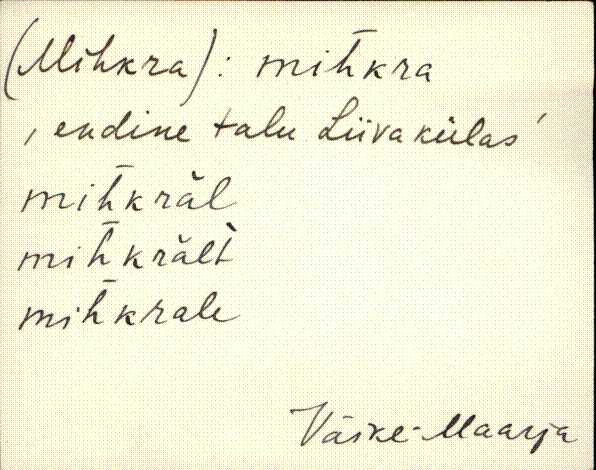 (Mihkra): mih̄kra
‚ endine talu Liivakülas’
mih̄krăl
mih̄krăl̀t
mih̄krale
Väike-Maarja